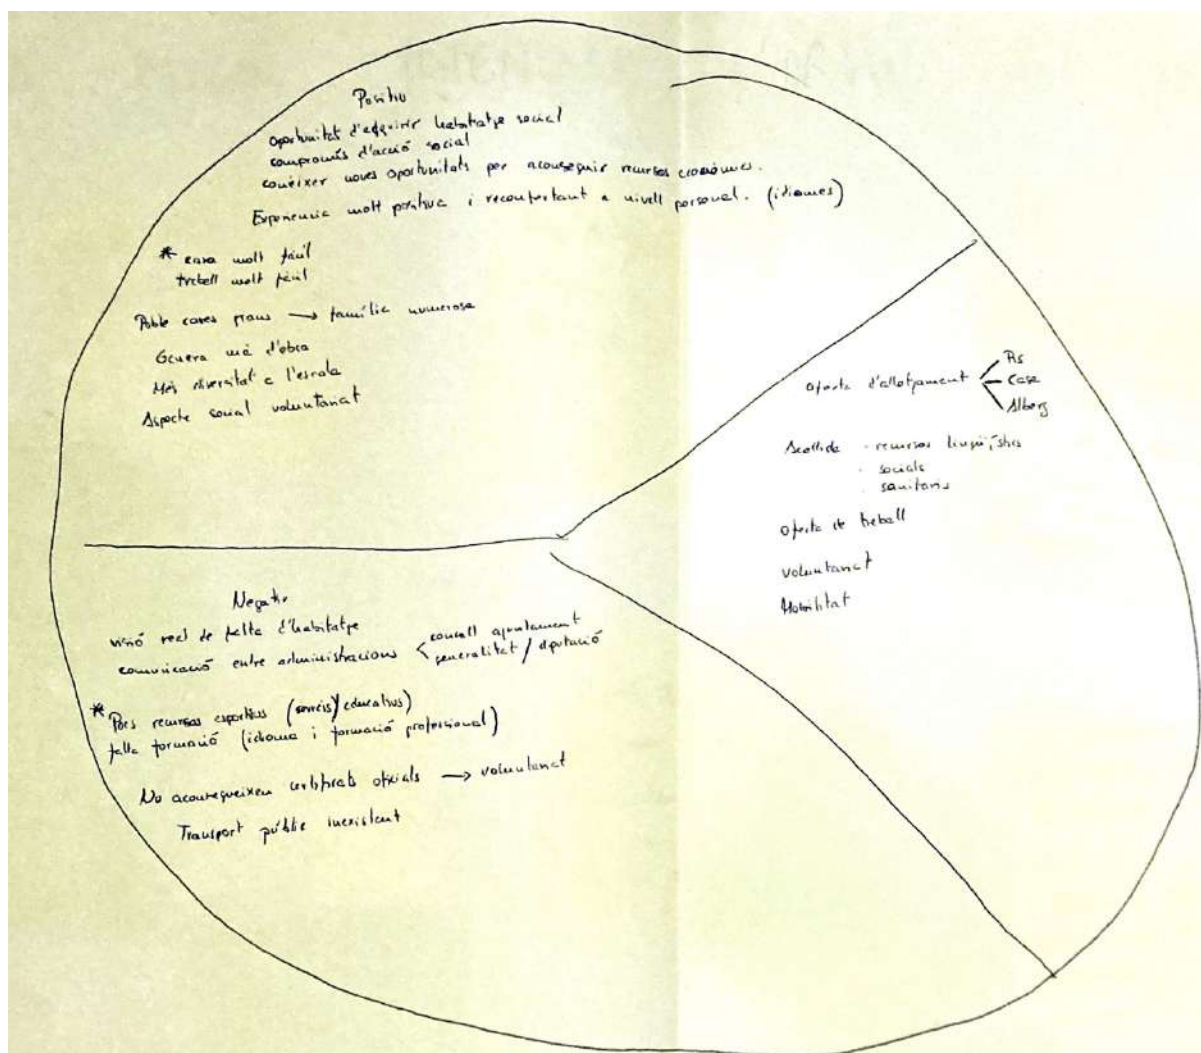 Positiu
oportunitat d'adquirir habitatge social
compromís d'acció social
conèixer noves oportunitats per aconseguir recursos econòmics.
Experiencia molt positiva i reconfortant a nivell personal. (idiomes)
* casa molt fàcil
treball molt fàcil
Poble cases grans → família numerosa
Genera mà d'obra
Més diversitat a l'escola
Aspecte social voluntariat
Oferta d'allotjament
Pis
Casa
Alberg
Acollida - recursos lingüístics
· socials
· sanitaris
oferta de treball
voluntariat
Mobilitat
Negatiu
visió real de falta d'habitatge
comunicació entre administracions
consell ajuntament
generalitat / diputació
* Pocs recursos esportius (serveis)/educatius)
falta formació (idioma i formació professional)
No aconsegueixen certificats oficials → voluntariat
Transport públic inexistent